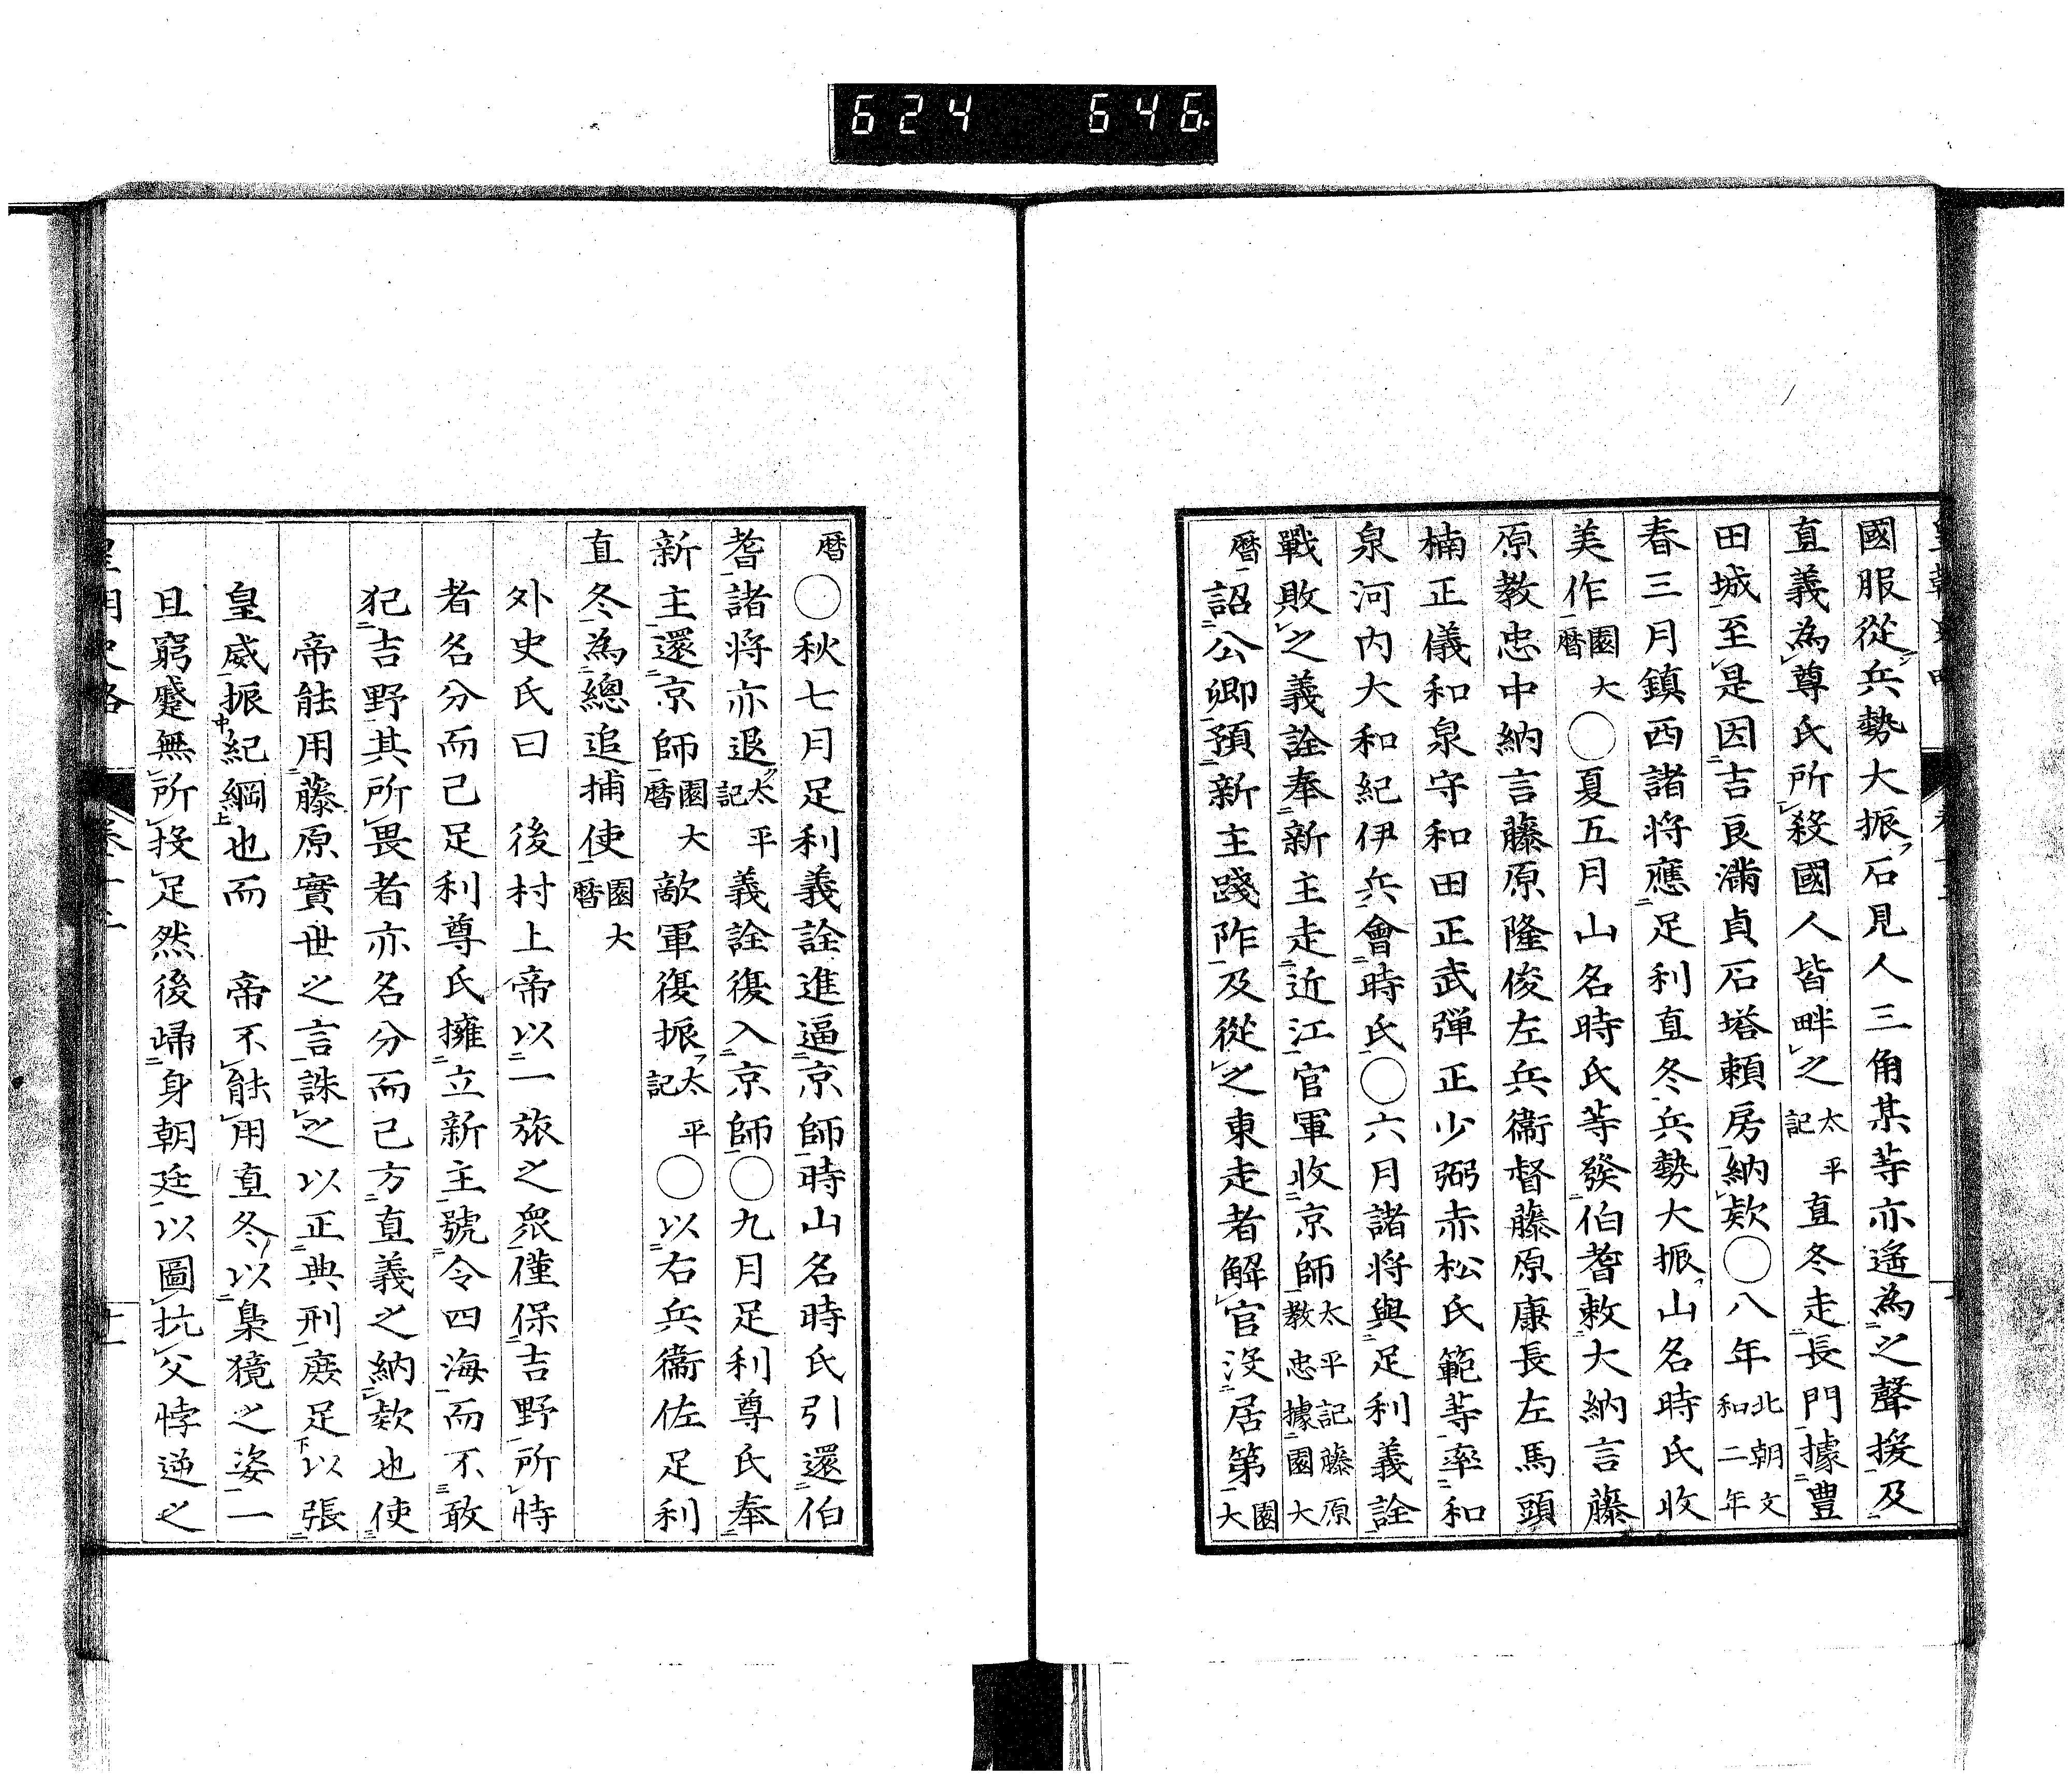 624 646.
國服從兵勢大振石見人三角某等亦遙為之聲援及
直義為尊氏所殺國人皆畔之太平記直冬走長門據豊
田城至是因吉良滿貞石塔頼房納欵〇八年北朝文和二年
春三月鎮西諸将應足利直冬兵勢大振山名時氏收
美作園大暦〇夏五月山名時氏等發伯耆敕大納言藤
原教忠中納言藤原隆俊左兵衞督藤原康長左馬頭
楠正儀和泉守和田正武弾正少弼赤松氏範等率和
泉河内大和紀伊兵會時氏〇六月諸将與足利義詮
戰敗之義詮奉新主走近江官軍收京師太平記藤原教忠據園大
暦詔公卿預新主踐阼及從之東走者解官沒居第園大
暦〇秋七月足利義詮進逼京師時山名時氏引還伯
耆諸将亦退太平記義詮復入京師〇九月足利尊氏奉
新主還京師園大暦敵軍復振太平記〇以右兵衞佐足利
直冬為總追捕使園大暦
外史氏曰 後村上帝以一旅之衆僅保吉野所恃
者名分而己足利尊氏擁立新主號令四海而不敢
犯吉野其所畏者亦名分而己方直義之納欵也使
帝能用藤原實世之言誅之以正典刑庶足以張
皇威振紀綱也而 帝不能用直冬以梟獍之姿一
旦窮蹙無所投足然後歸身朝廷以圖抗父悖逆之